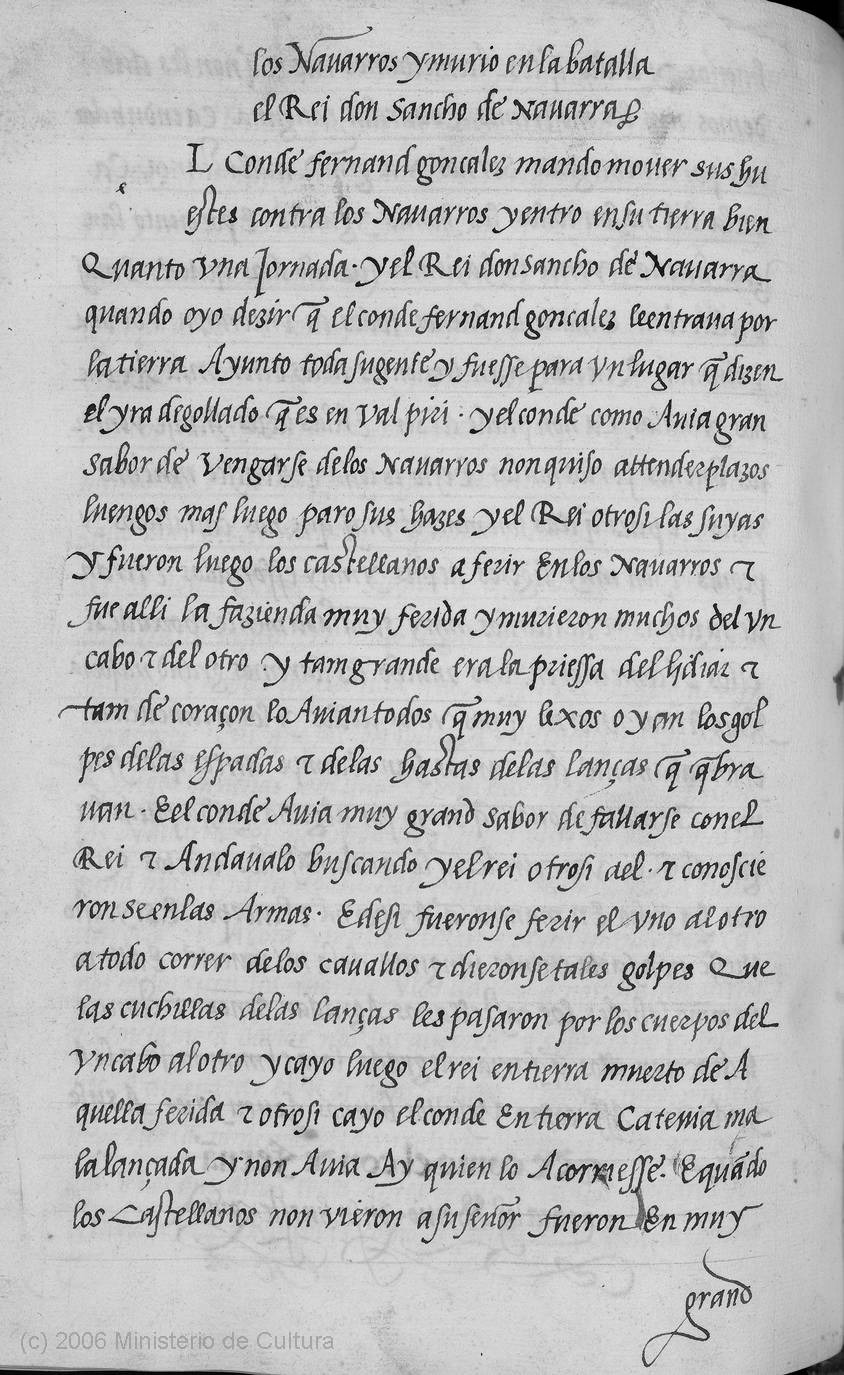 los Navarros y murio en la batalla
el Rei don Sancho de Navarra
e
L Conde fernand goncalez mando mover sus hu
estes contra los Navarros y entro en su tierra bien
Quanto vna Jornada. y el Rei don sancho de Navarra
quando oyo dezir q̃ el conde fernand goncalez le entraua por
la tierra Ayunto toda su gente y fuesse para vn lugar q̃ dizen
el yra degollado q̃ es en Val piri. y el conde como Auia gran
sabor de Vengarse de los Navarros non quiso attender plazos
luengos mas luego paro sus hazes y el Rei otrosi las suyas
y fueron luego los castellanos a ferir En los Navarros τ
fue alli la fazienda muy ferida y murieron muchos del vn
cabo τ del otro y tam grande era la priessa del lidiar τ
tam de coraçon lo Auian todos q̃ muy lexos oyan los gol
pes de las espadas τ de las hastas de las lanças q̃ q̃bra
uan. E el conde Auia muy grand sabor de fallarse con el
Rei τ Andaualo buscando y el rei otrosi ael. τ conoscie
ronse en las Armas. E desi fueronse ferir el vno al otro
a todo correr de los cauallos τ dieronse tales golpes Que
las cuchillas de las lanças les pasaron por los cuerpos del
Vn cabo al otro y cayo luego el rei en tierra muerto de A
quella ferida τ otrosi cayo el conde En tierra Ca tenia ma
la lançada y non Auia Ay quien lo Acorriesse. E quãdo
los Castellanos non vieron a su señor fueron En muy
grand
(c) 2006 Ministerio de Cultura